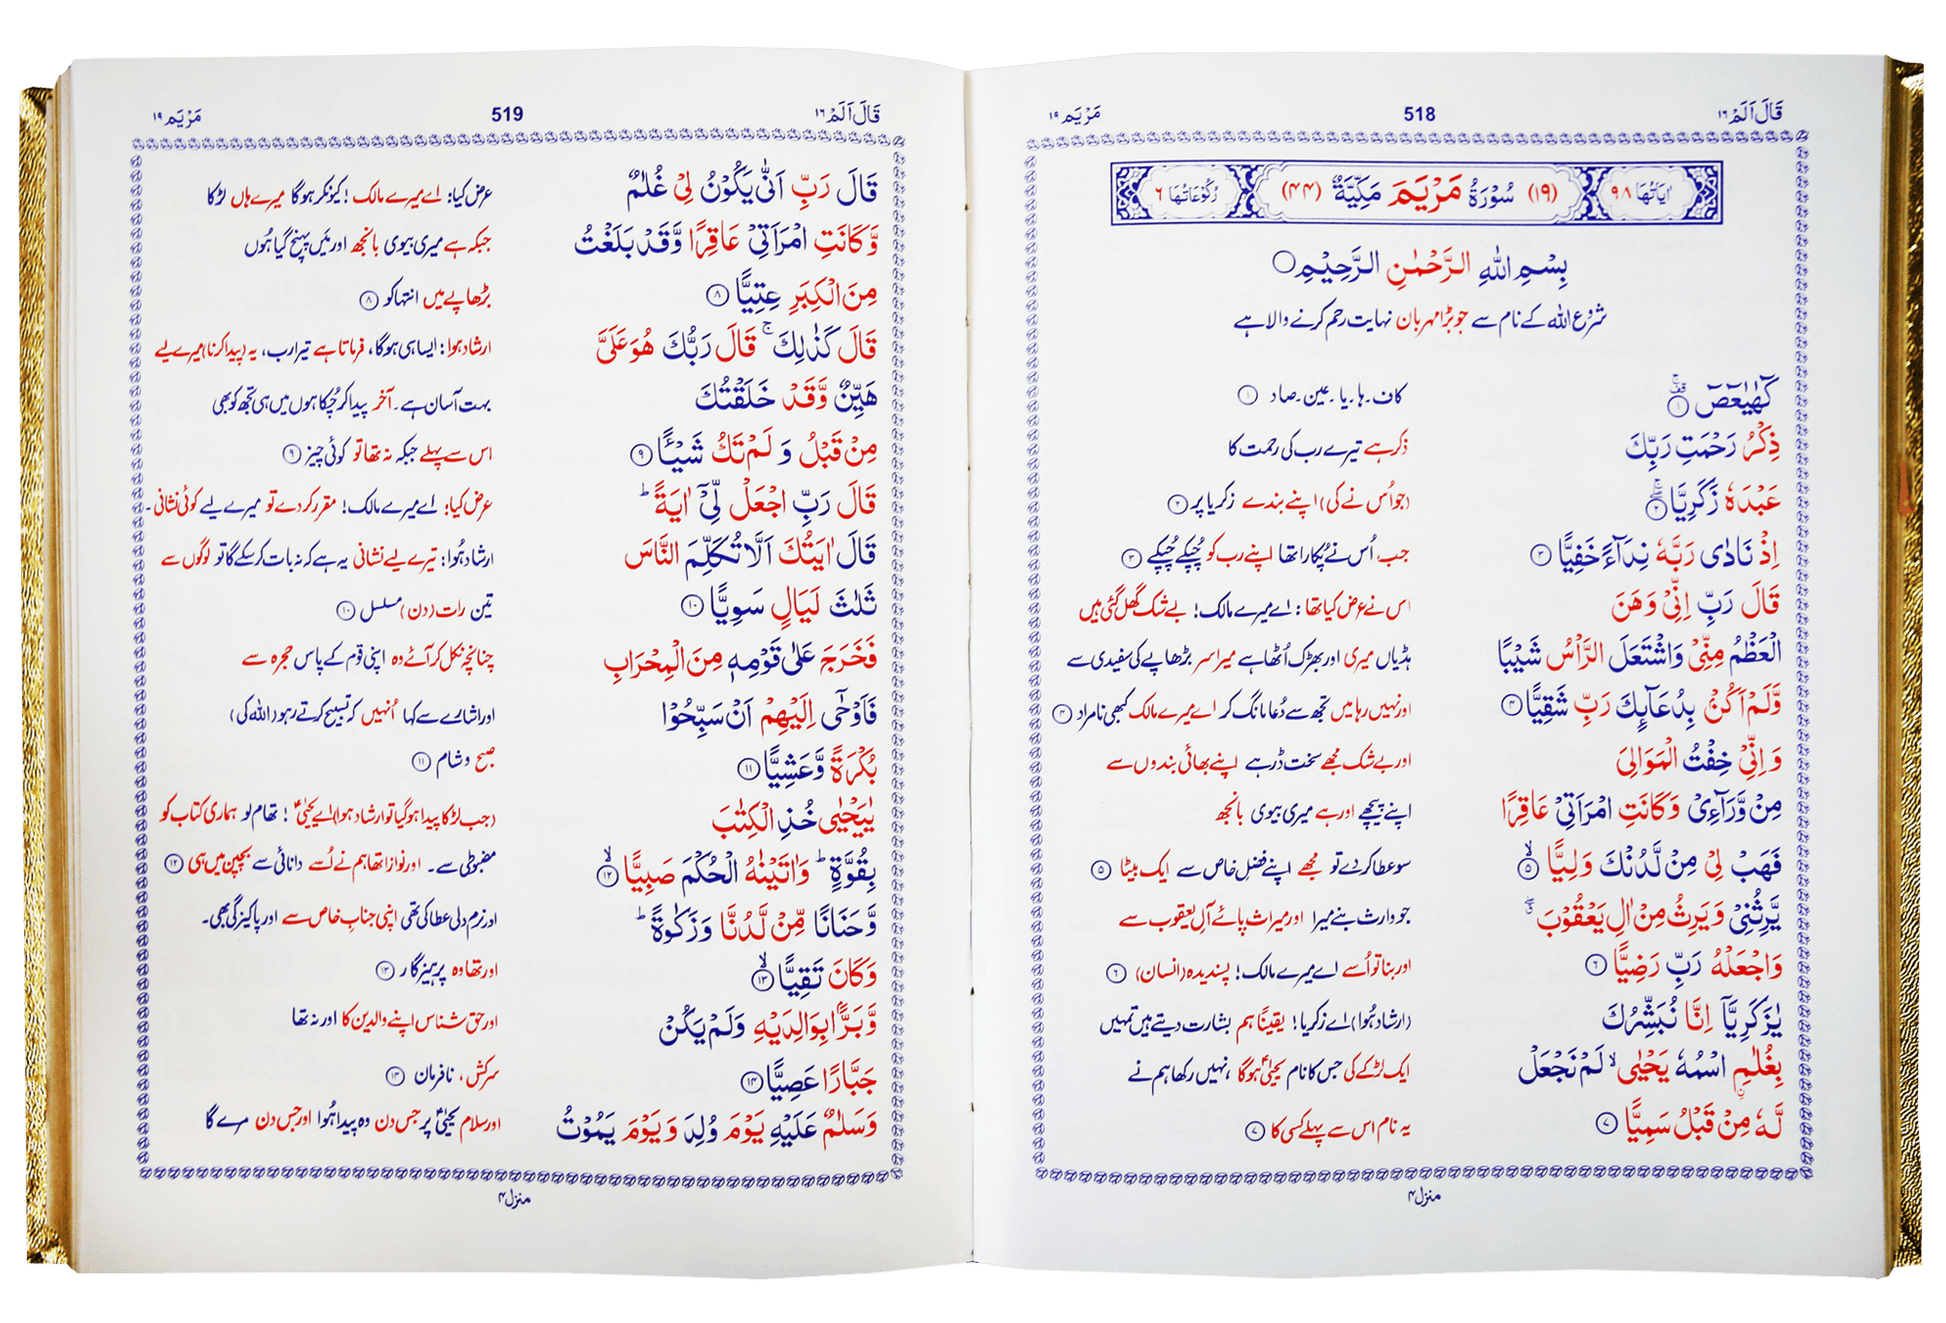 قَالَ اَلَمْ ١٦ 518 مَرْيَم ١٩
اٰيَاتُهَا ٩٨ (١٩) سُوْرَةُ مَرْيَمَ مَكِّيَّةٌ (٤٤) رُكُوْعَاتُهَا ٦
بِسْمِ اللّٰهِ الرَّحْمٰنِ الرَّحِيْمِ
شروع اللہ کے نام سے جو بڑا مہربان نہایت رحم کرنے والا ہے
كٓهٰيٰعٓصٓ ۚ ١ کاف۔ہا۔یا۔عین۔صاد ١
ذِكْرُ رَحْمَتِ رَبِّكَ ذکر ہے تیرے رب کی رحمت کا
عَبْدَهٗ زَكَرِيَّا ۚ ٢ (جو اُس نے کی) اپنے بندے زکریا پر ٢
اِذْ نَادٰى رَبَّهٗ نِدَآءً خَفِيًّا ٣ جب اُس نے پُکارا تھا اپنے رب کو چُپکے چُپکے ٣
قَالَ رَبِّ اِنِّيْ وَهَنَ اس نے عرض کیا تھا: اے میرے مالک! بے شک گھل گئی ہیں
الْعَظْمُ مِنِّيْ وَاشْتَعَلَ الرَّاْسُ شَيْبًا ہڈیاں میری اور بھڑک اُٹھا ہے میرا سر بڑھاپے کی سفیدی سے
وَّلَمْ اَكُنْۢ بِدُعَآئِكَ رَبِّ شَقِيًّا ٤ اور نہیں رہا میں تجھ سے دُعا مانگ کر اے میرے مالک کبھی نامراد ٤
وَاِنِّيْ خِفْتُ الْمَوَالِيَ اور بے شک مجھے سخت ڈر ہے اپنے بھائی بندوں سے
مِنْ وَّرَآءِيْ وَكَانَتِ امْرَاَتِيْ عَاقِرًا اپنے پیچھے اور ہے میری بیوی بانجھ
فَهَبْ لِيْ مِنْ لَّدُنْكَ وَلِيًّا ۙ ٥ سو عطا کر دے تو مجھے اپنے فضل خاص سے ایک بیٹا ٥
يَّرِثُنِيْ وَيَرِثُ مِنْ اٰلِ يَعْقُوْبَ ۖ جو وارث بنے میرا اور میراث پائے آلِ یعقوب سے
وَاجْعَلْهُ رَبِّ رَضِيًّا ٦ اور بنا تو اُسے اے میرے مالک! پسندیدہ (انسان) ٦
يٰزَكَرِيَّآ اِنَّا نُبَشِّرُكَ (ارشاد ہُوا) اے زکریا! یقینًا ہم بشارت دیتے ہیں تمہیں
بِغُلٰمِ ۨ اسْمُهٗ يَحْيٰى ۙ لَمْ نَجْعَلْ ایک لڑکے کی جس کا نام یحیٰی ہوگا، نہیں رکھا ہم نے
لَّهٗ مِنْ قَبْلُ سَمِيًّا ٧ یہ نام اس سے پہلے کسی کا ٧
منزل ٤
قَالَ اَلَمْ ١٦ 519 مَرْيَم ١٩
قَالَ رَبِّ اَنّٰى يَكُوْنُ لِيْ غُلٰمٌ عرض کیا: اے میرے مالک! کیونکر ہوگا میرے ہاں لڑکا
وَّكَانَتِ امْرَاَتِيْ عَاقِرًا وَّقَدْ بَلَغْتُ جبکہ ہے میری بیوی بانجھ اور میں پہنچ گیا ہُوں
مِنَ الْكِبَرِ عِتِيًّا ٨ بڑھاپے میں انتہا کو ٨
قَالَ كَذٰلِكَ ۚ قَالَ رَبُّكَ هُوَ عَلَيَّ ارشاد ہوا: ایسا ہی ہوگا، فرماتا ہے تیرا رب، یہ (پیدا کرنا) میرے لیے
هَيِّنٌ وَّقَدْ خَلَقْتُكَ بہت آسان ہے۔ آخر پیدا کر چُکا ہوں میں ہی تجھ کو بھی
مِنْ قَبْلُ وَلَمْ تَكُ شَيْـًٔا ٩ اس سے پہلے جبکہ نہ تھا تو کوئی چیز ٩
قَالَ رَبِّ اجْعَلْ لِّيْٓ اٰيَةً ؕ عرض کیا: اے میرے مالک! مقرر کر دے تو میرے لیے کوئی نشانی۔
قَالَ اٰيَتُكَ اَلَّا تُكَلِّمَ النَّاسَ ارشاد ہُوا: تیرے لیے نشانی یہ ہے کہ نہ بات کر سکے گا تو لوگوں سے
ثَلٰثَ لَيَالٍ سَوِيًّا ١٠ تین رات (دن) مسلسل ١٠
فَخَرَجَ عَلٰى قَوْمِهٖ مِنَ الْمِحْرَابِ چنانچہ نکل کر آئے وہ اپنی قوم کے پاس حجرہ سے
فَاَوْحٰٓى اِلَيْهِمْ اَنْ سَبِّحُوْا اور اشارے سے کہا اُنہیں کہ تسبیح کرتے رہو (اللہ کی)
بُكْرَةً وَّعَشِيًّا ١١ صبح و شام ١١
يٰيَحْيٰى خُذِ الْكِتٰبَ (جب لڑکا پیدا ہو گیا تو ارشاد ہوا) اے یحیٰی! تھام لو ہماری کتاب کو
بِقُوَّةٍ ؕ وَاٰتَيْنٰهُ الْحُكْمَ صَبِيًّا ۙ ١٢ مضبوطی سے۔ اور نوازا تھا ہم نے اُسے دانائی سے بچپن میں ہی ١٢
وَّحَنَانًا مِّنْ لَّدُنَّا وَزَكٰوةً ؕ اور نرم دلی عطا کی تھی اپنی جناب خاص سے اور پاکیزگی بھی۔
وَكَانَ تَقِيًّا ۙ ١٣ اور تھا وہ پرہیزگار ١٣
وَّبَرًّۢا بِوَالِدَيْهِ وَلَمْ يَكُنْ اور حق شناس اپنے والدین کا اور نہ تھا
جَبَّارًا عَصِيًّا ١٤ سرکش، نافرمان ١٤
وَسَلٰمٌ عَلَيْهِ يَوْمَ وُلِدَ وَيَوْمَ يَمُوْتُ اور سلام یحیٰی پر جس دن وہ پیدا ہُوا اور جس دن مرے گا
منزل ٤